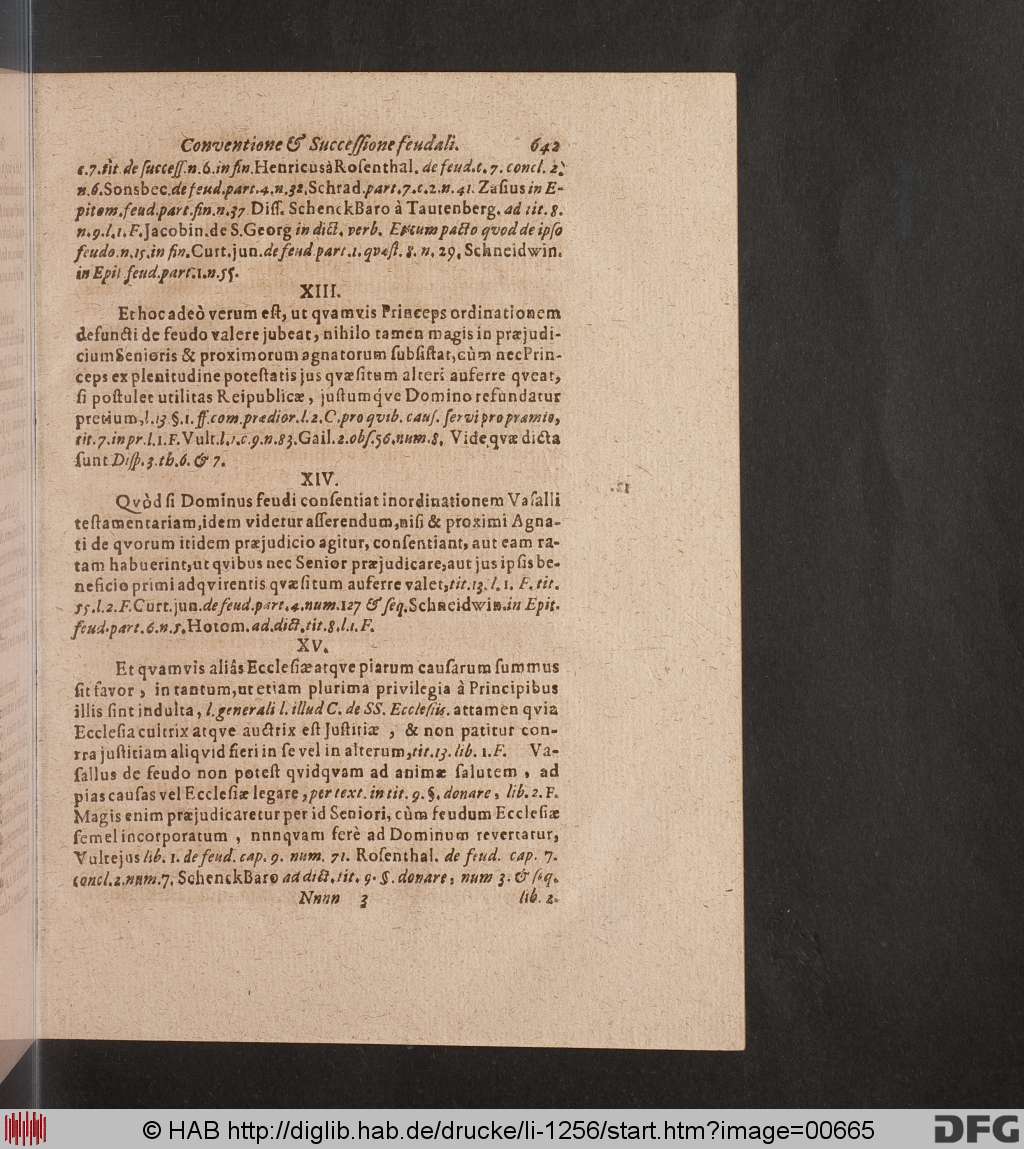 Conventione & Successione feudali. 642
c.7.tit. de success.n.6.in fin.HenricusàRosenthal. de feud.c.7. concl. 2.
n.6.Sonsbec.de feud.part.4.n.32.Schrad.part.7.c.2.n.41. Zasius in E-
pitom.feud.part.fin.n.37 Diss. SchenckBaro à Tautenberg. ad tit. 8.
n.9.l.1.F.Jacobin.de S.Georg in dict. verb. Et cum pacto qvod de ipso
feudo.n.15.in fin.Curt.jun.de feud part.1.qvæst. 8. n. 29. Schneidwin.
in Epit feud.part.1.n.55.
XIII.
Et hoc adeò verum est, ut qvamvis Princeps ordinationem
defuncti de feudo valere jubeat, nihilo tamen magis in præjudi-
cium Senioris & proximorum agnatorum subsistat, cùm nec Prin-
ceps ex plenitudine potestatis jus qvæsitum alteri auferre qveat,
si postulet utilitas Reipublicæ, justumq́ve Domino refundatur
pretium, l.13 §.1. ff.com.prædior.l.2.C.pro qvib. caus. servi pro præmio,
tit.7.in pr.l.1.F.Vult.l.1.c.9.n.83.Gail.2.obs.56.num.8. Vide qvæ dicta
sunt Disp.3.th.6. & 7.
XIV.
Qvòd si Dominus feudi consentiat in ordinationem Vasalli
testamentariam, idem videtur asserendum, nisi & proximi Agna-
ti de qvorum itidem præjudicio agitur, consentiant, aut eam ra-
tam habuerint, ut qvibus nec Senior præjudicare, aut jus ipsis be-
neficio primi adqvirentis qvæsitum auferre valet, tit.13. l. 1. F. tit.
55.l.2.F.Curt.jun.de feud.part.4.num.127 & seq.Schneidwin.in Epit.
feud.part.6.n.5.Hotom.ad.dict.tit.8.l.1.F.
XV.
Et qvamvis aliâs Ecclesiæ atqve piarum causarum summus
sit favor, in tantum, ut etiam plurima privilegia à Principibus
illis sint indulta, l.generali l.illud C. de SS. Ecclesiis. attamen qvia
Ecclesia cultrix atqve auctrix est Justitiæ, & non patitur con-
rra justitiam aliqvid fieri in se vel in alterum, tit.13. lib. 1.F. Va-
sallus de feudo non potest qvidqvam ad animæ salutem, ad
pias causas vel Ecclesiæ legare, per text. in tit. 9. §. donare, lib. 2. F.
Magis enim præjudicaretur per id Seniori, cùm feudum Ecclesiæ
semel incorporatum, nnnqvam ferè ad Dominum revertatur,
Vultejus lib. 1. de feud. cap. 9. num. 71. Rosenthal. de feud. cap. 7.
concl.2.num.7. SchenckBaro ad dict. tit. 9. §. donare, num 3. & seq.
Nnnn 3 lib. 2.
© HAB http://diglib.hab.de/drucke/li-1256/start.htm?image=00665
DFG